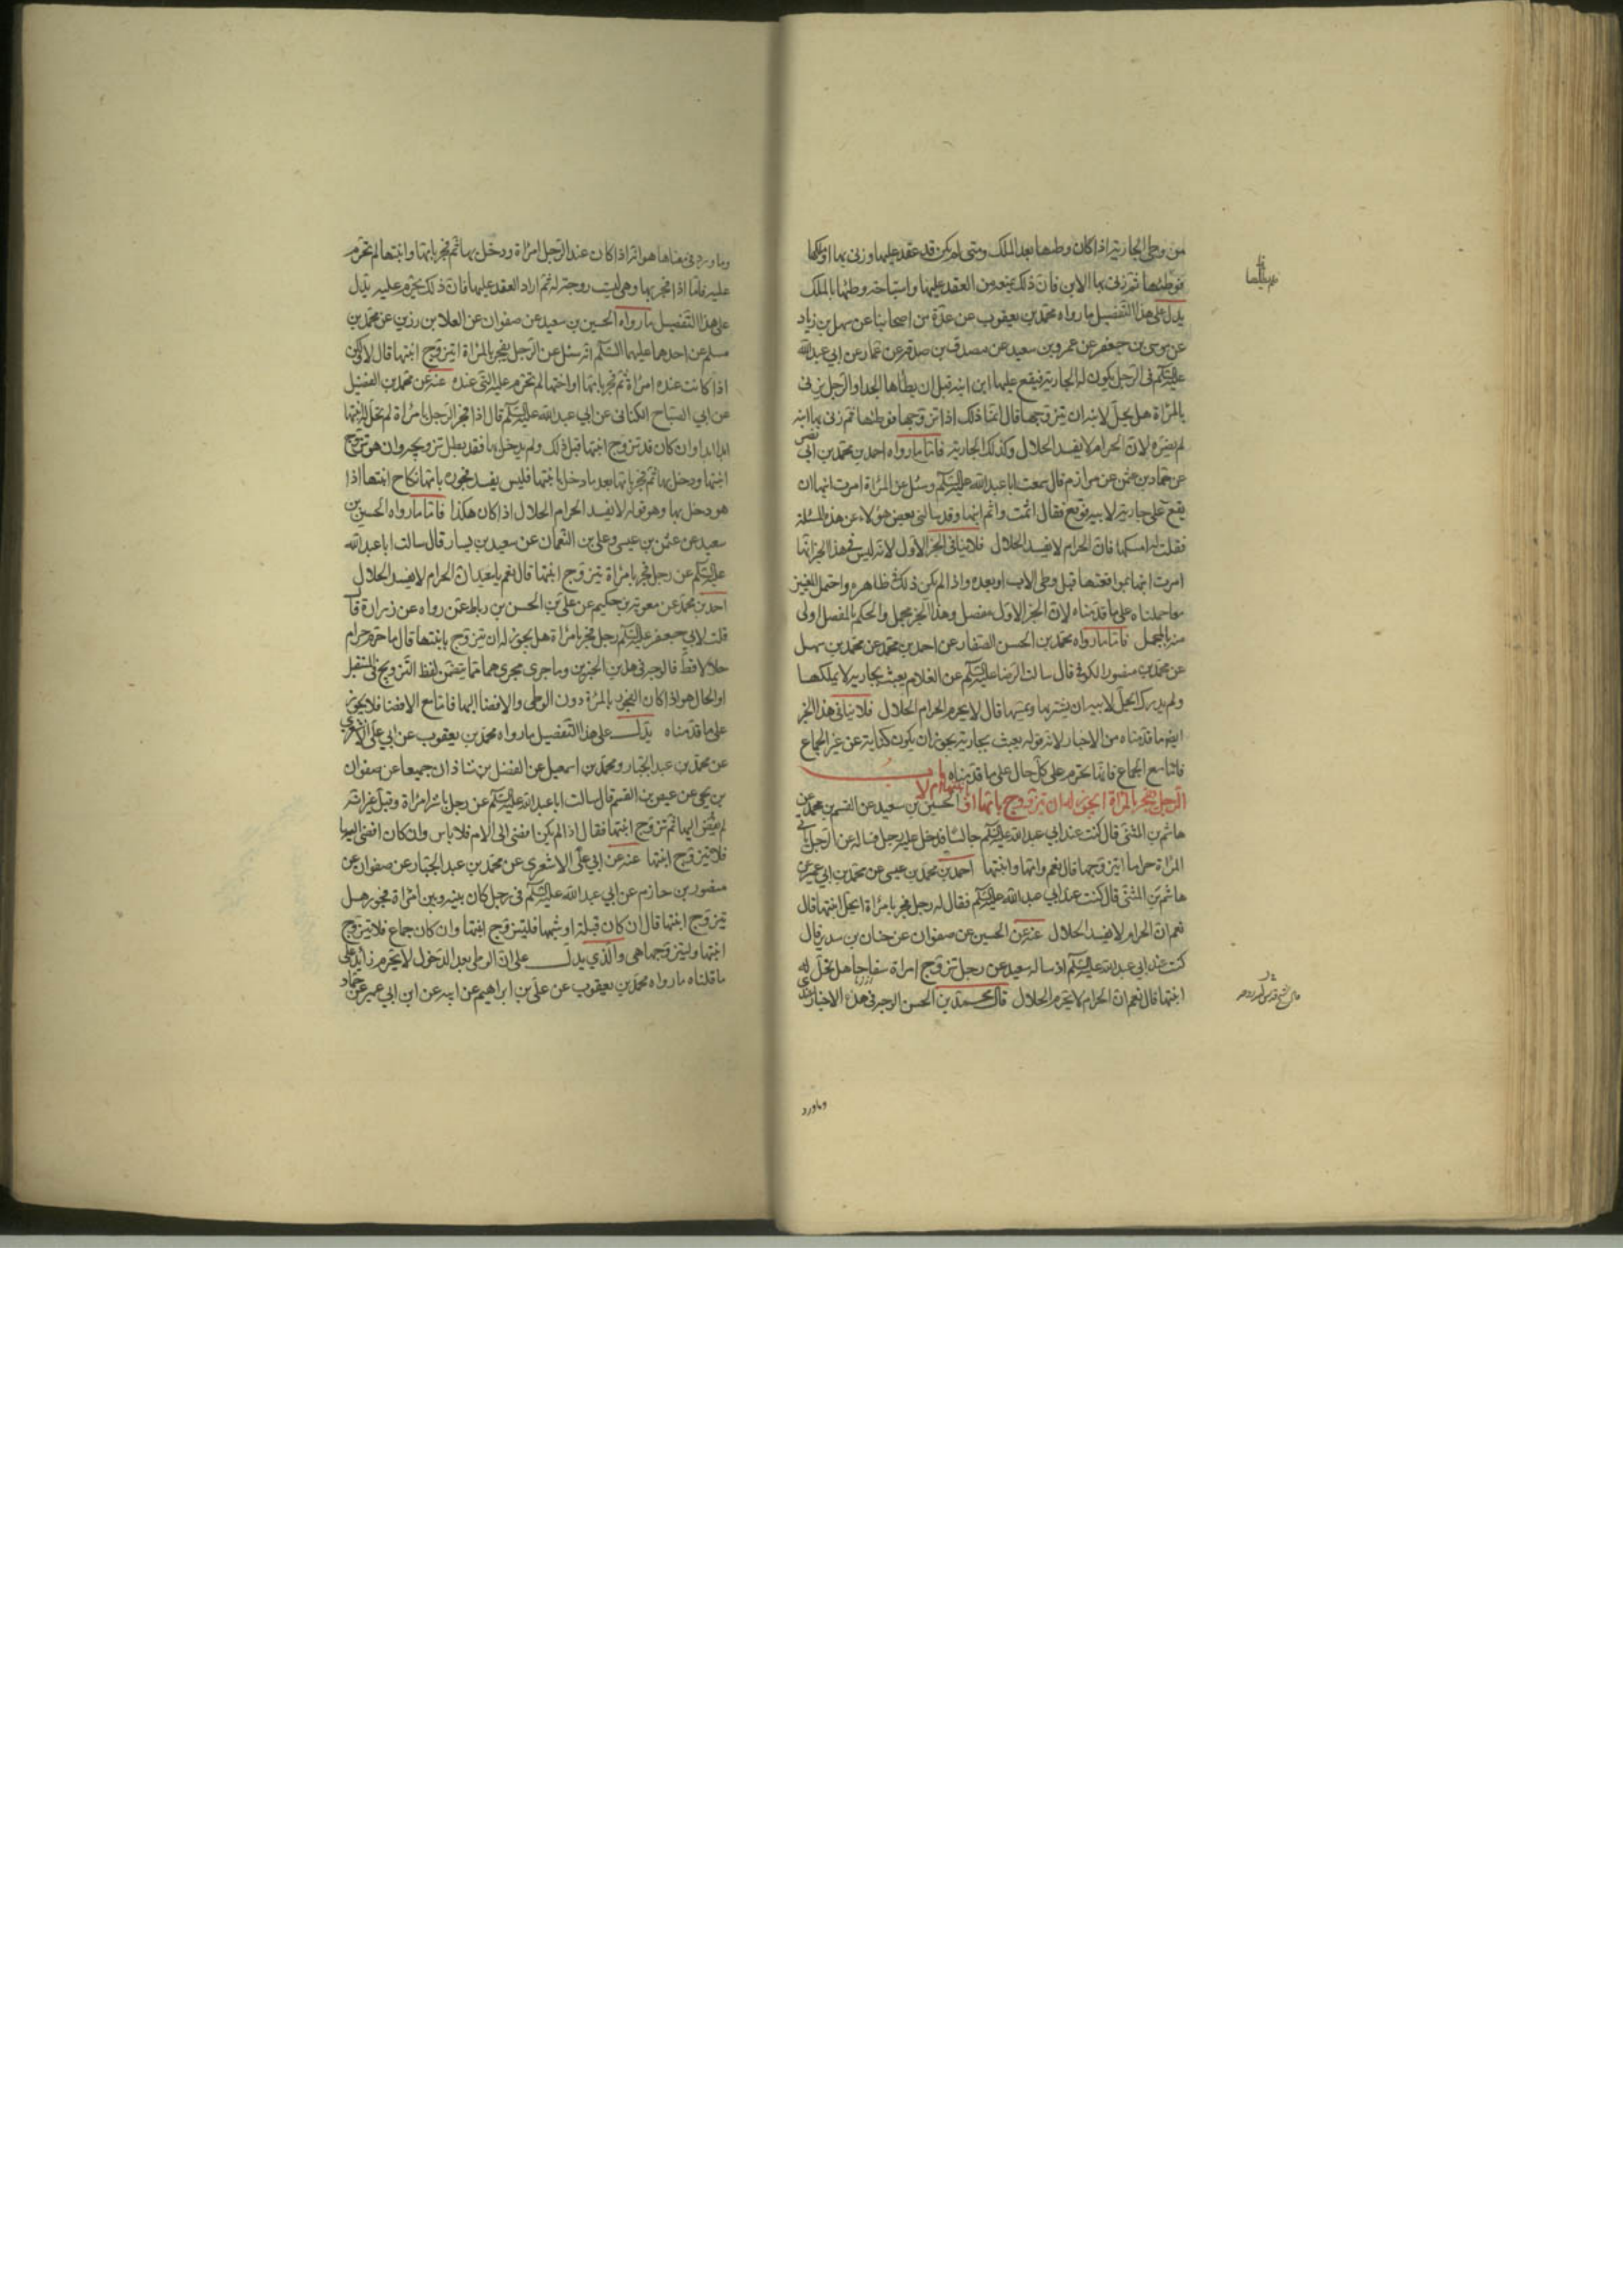 من وطى الجارية اذا كان وطئها بعد الملك ومتى لم يكن قد عقد عليها وزنى بها او ملكها
فوطئها ثم زنى بها الابن فان ذلك يمنعه من العقد عليها واستباحة وطئها بالملك
يدل على هذا التفصيل ما رواه محمد بن يعقوب عن عدة من اصحابنا عن سهل بن زياد
عن موسى بن جعفر عن عمرو بن سعيد عن مصدق بن صدقة عن عمار عن ابي عبدالله
عليه السلم في الرجل يكون له الجارية فيقع عليها ابن ابنه قبل ان يطأها الجد او الرجل يزنى
بالمرأة هل يحل لابنه ان يتزوجها قال انما ذلك اذا تزوجها فوطئها ثم زنى بها ابنه
لم يضره لان الحرام لا يفسد الحلال وكذلك الجارية فاما ما رواه احمد بن محمد بن ابي نصر
عن حماد بن عثمن عن مرازم قال سمعت ابا عبدالله عليه السلم وسئل عن المرأة امرت ابنها ان
يقع على جارية لابيه فوقع فقال اثمت واثم ابنها وقد سألنى بعض هؤلاء عن هذه المسئلة
فقلت له امسكها فان الحرام لا يفسد الحلال فلا ينافى الخبر الاول لانه ليس في هذا الخبر انها
امرت ابنها بمواقعتها قبل وطى الاب او بعده واذا لم يكن ذلك في ظاهره واحتمل الامرين
معا حملناه على ما قدمناه لان الخبر الاول مفصل وهذا الخبر مجمل والحكم بالمفصل اولى
منه بالمجمل فاما ما رواه محمد بن الحسن الصفار عن احمد بن محمد عن محمد بن سهل
عن محمد بن منصور الكوفي قال سالت الرضا عليه السلم عن الغلام يعبث بجارية لا يملكها
ولم يدرك ايحل لابيه ان يشتريها ويمسها قال لا يحرم الحرام الحلال فلا ينافي هذا الخبر
ايضا ما قدمناه من الاخبار لانه قوله يعبث بجارية يجوز ان يكون كناية عن غير الجماع
فاما مع الجماع فانها يحرم على كل حال على ما قدمناه باب
الرجل يفجر بالمرأة ايجوز له ان يتزوج بامها او ابنتها ام لا الحسين بن سعيد عن القسم بن محمد عن
هاشم بن المثنى قال كنت عند ابي عبدالله عليه السلم جالسا فدخل عليه رجل فساله عن الرجل ياتي
المرأة حراما ايتزوجها قال نعم وامها وابنتها احمد بن محمد بن عيسى عن محمد بن ابي عمير عن
هاشم بن المثنى قال كنت عند ابي عبدالله عليه السلم فقال له رجل فجر بامرأة ايحل ابنتها قال
نعم ان الحرام لا يفسد الحلال عنه عن الحسين عن صفوان عن حنان بن سدير قال
كنت عند ابي عبدالله عليه السلم اذ ساله سعيد عن رجل تزوج امراة سفاحا هل يحل له
ابنتها قال نعم ان الحرام لا يحرم الحلال قال محمد بن الحسن الوجه في هذه الاخبار
وما ورد
وما ورد في معناها هو انه اذا كان عند الرجل امرأة ودخل بها ثم فجر بامها وابنتها لم تحرم
عليه فاما اذا فجر بها وهي ليست زوجة له ثم اراد العقد عليها فان ذلك يحرم عليه يدل
على هذا التفصيل ما رواه الحسين بن سعيد عن صفوان عن العلا بن رزين عن محمد بن
مسلم عن احدهما عليهما السلم انه سئل عن الرجل يفجر بالمرأة ايتزوج ابنتها قال لا ولكن
اذا كانت عنده امرأة ثم فجر بامها او اختها لم تحرم عليه التي عنده عنه عن محمد بن الفضيل
عن ابي الصباح الكناني عن ابي عبدالله عليه السلم قال اذا فجر الرجل بامرأة لم تحل له ابنتها
ابدا وان كان قد تزوج ابنتها قبل ذلك ولم يدخل بها فقد بطل تزويجه وان هو تزوج
ابنتها ودخل بها ثم فجر بامها بعد ما دخل بابنتها فليس يفسد فجوره بامها نكاح ابنتها اذا
هو دخل بها وهو قوله لا يفسد الحرام الحلال اذا كان هكذا فاما ما رواه الحسين بن
سعيد عن عثمن بن عيسى وعلى بن النعمان عن سعيد بن يسار قال سالت ابا عبدالله
عليه السلم عن رجل فجر بامرأة يتزوج ابنتها قال نعم يا سعيد ان الحرام لا يفسد الحلال
احمد بن محمد عن معوية بن حكيم عن على بن الحسن بن رباط عمن رواه عن زرارة قال
قلت لابي جعفر عليه السلم رجل فجر بامرأة هل يجوز له ان يتزوج بابنتها قال ما حرم حرام
حلالا قط فالوجه في هذين الخبرين وما جرى مجراهما مما يتضمن لفظ التزويج في المستقبل
او الحال هو اذا كان الفجور بالمرأة دون الوطى والافضا اليها فاما مع الافضا فلا يجوز
على ما قدمناه يدل على هذا التفصيل ما رواه محمد بن يعقوب عن ابي على الاشعري
عن محمد بن عبد الجبار ومحمد بن اسمعيل عن الفضل بن شاذان جميعا عن صفوان
بن يحيى عن عيص بن القسم قال سالت ابا عبدالله عليه السلم عن رجل باشر امرأة وقبل غير انه
لم يفض اليها ثم تزوج ابنتها فقال اذا لم يكن افضى الى الام فلا باس وان كان افضى اليها
فلا يتزوج ابنتها عنه عن ابي على الاشعري عن محمد بن عبد الجبار عن صفوان عن
منصور بن حازم عن ابي عبدالله عليه السلم في رجل كان بينه وبين امرأة فجور هل
يتزوج ابنتها قال ان كان قبلة او شبهها فليتزوج ابنتها وان كان جماع فلا يتزوج
ابنتها وليتزوجها هي والذي يدل على ان الوطى بعد الدخول لا يحرم زائدا على
ما قلناه ما رواه محمد بن يعقوب عن على بن ابراهيم عن ابيه عن ابن ابي عمير عن حماد